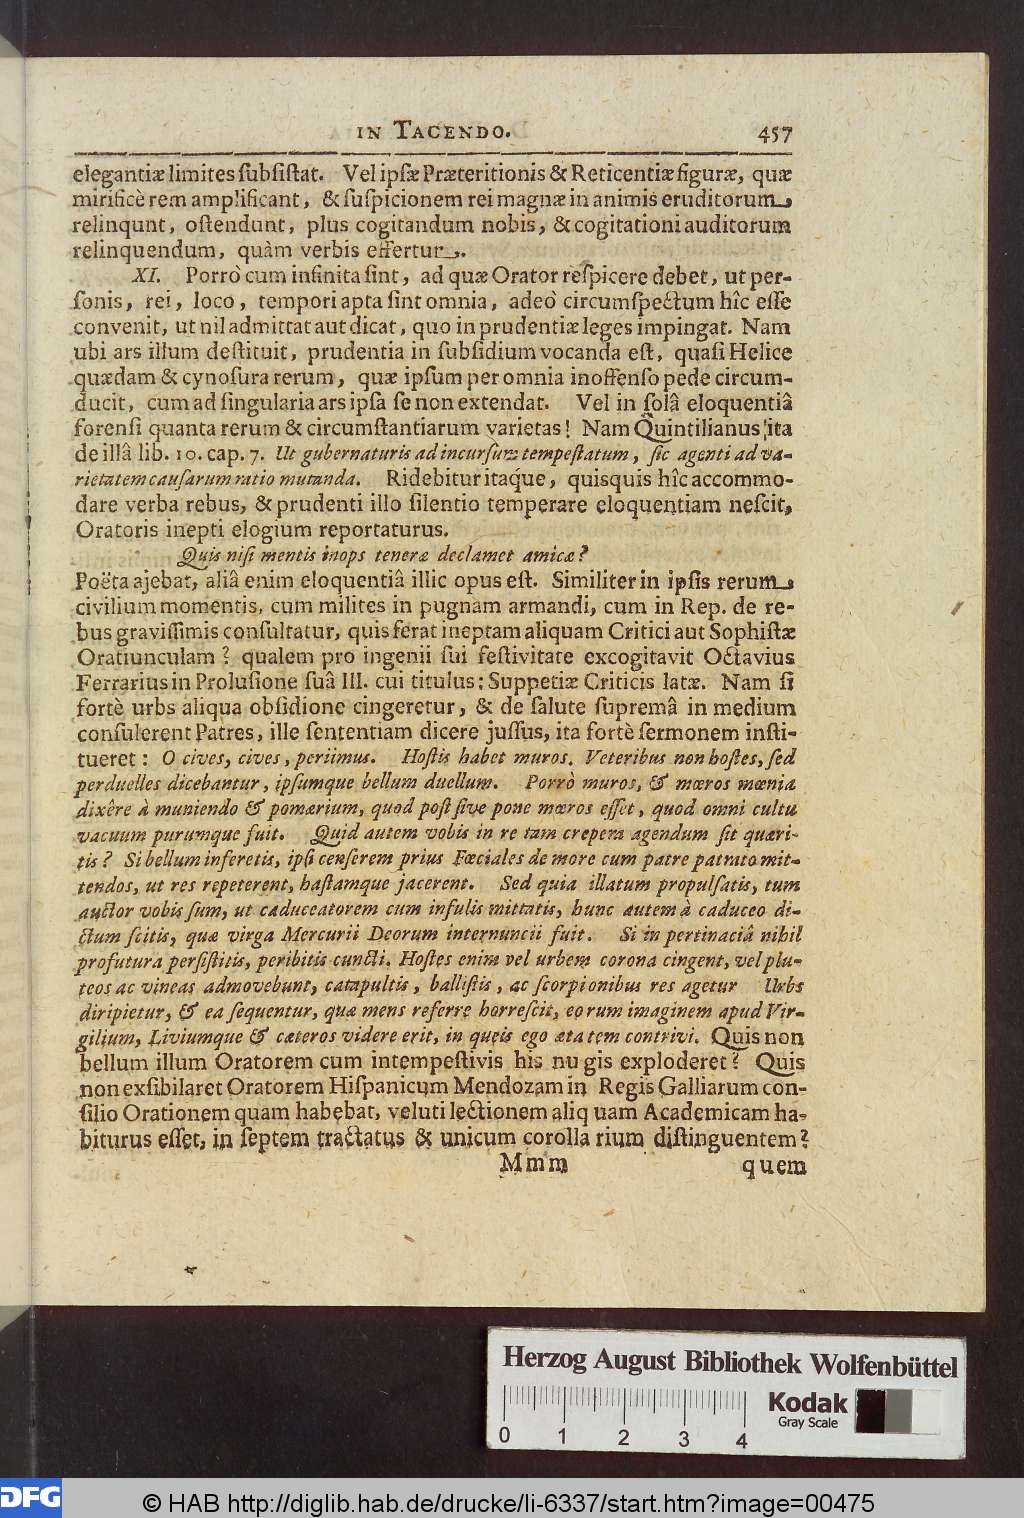 IN TACENDO. 457
elegantiæ limites subsistat. Vel ipsæ Præteritionis & Reticentiæ figuræ, quæ
mirificè rem amplificant, & suspicionem rei magnæ in animis eruditorum,
relinqunt, ostendunt, plus cogitandum nobis, & cogitationi auditorum
relinquendum, quàm verbis effertur.
XI. Porrò cum infinita sint, ad quæ Orator respicere debet, ut per-
sonis, rei, loco, tempori apta sint omnia, adeò circumspectum hîc esse
convenit, ut nil admittat aut dicat, quo in prudentiæ leges impingat. Nam
ubi ars illum destituit, prudentia in subsidium vocanda est, quasi Helice
quædam & cynosura rerum, quæ ipsum per omnia inoffenso pede circum-
ducit, cum ad singularia ars ipsa se non extendat. Vel in solâ eloquentiâ
forensi quanta rerum & circumstantiarum varietas! Nam Quintilianus ita
de illâ lib. 10. cap. 7. Ut gubernaturis ad incursum tempestatum, sic agenti ad va-
rietatem causarum ratio mutanda. Ridebitur itaq́ue, quisquis hîc accommo-
dare verba rebus, & prudenti illo silentio temperare eloquentiam nescit,
Oratoris inepti elogium reportaturus.
Quis nisi mentis inops teneræ declamet amicæ?
Poëta ajebat, aliâ enim eloquentiâ illic opus est. Similiter in ipsis rerum,
civilium momentis, cum milites in pugnam armandi, cum in Rep. de re-
bus gravissimis consultatur, quis ferat ineptam aliquam Critici aut Sophistæ
Oratiunculam? qualem pro ingenii sui festivitate excogitavit Octavius
Ferrarius in Prolusione suâ III. cui titulus: Suppetiæ Criticis latæ. Nam si
fortè urbs aliqua obsidione cingeretur, & de salute supremâ in medium
consulerent Patres, ille sententiam dicere jussus, ita fortè sermonem insti-
tueret: O cives, cives, periimus. Hostis habet muros. Veteribus non hostes, sed
perduelles dicebantur, ipsumque bellum duellum. Porrò muros, & mœros mœnia
dixêre à muniendo & pomœrium, quod post sive pone mœros esset, quod omni cultu
vacuum purumque fuit. Quid autem vobis in re tam crepera agendum sit quæri-
tis? Si bellum inferetis, ipsi censerem prius Fœciales de more cum patre patrato mit-
tendos, ut res repeterent, hastamque jacerent. Sed quia illatum propulsatis, tum
auctor vobis sum, ut caduceatorem cum infulis mittatis, hunc autem à caduceo di-
ctum scitis, quæ virga Mercurii Deorum internuncii fuit. Si in pertinaciâ nihil
profutura persistitis, peribitis cuncti. Hostes enim vel urbem corona cingent, vel plu-
teos ac vineas admovebunt, catapultis, ballistis, ac scorpionibus res agetur Urbs
diripietur, & ea sequentur, quæ mens referre horrescit, eorum imaginem apud Vir-
gilium, Liviumque & cæteros videre erit, in queis ego ætatem contrivi. Quis non
bellum illum Oratorem cum intempestivis his nu gis exploderet? Quis
non exsibilaret Oratorem Hispanicum Mendozam in Regis Galliarum con-
silio Orationem quam habebat, veluti lectionem aliq uam Academicam ha-
biturus esset, in septem tractatus & unicum corolla rium distinguentem?
Mmm quem
Herzog August Bibliothek Wolfenbüttel
Kodak
Gray Scale
0 1 2 3 4
DFG © HAB http://diglib.hab.de/drucke/li-6337/start.htm?image=00475